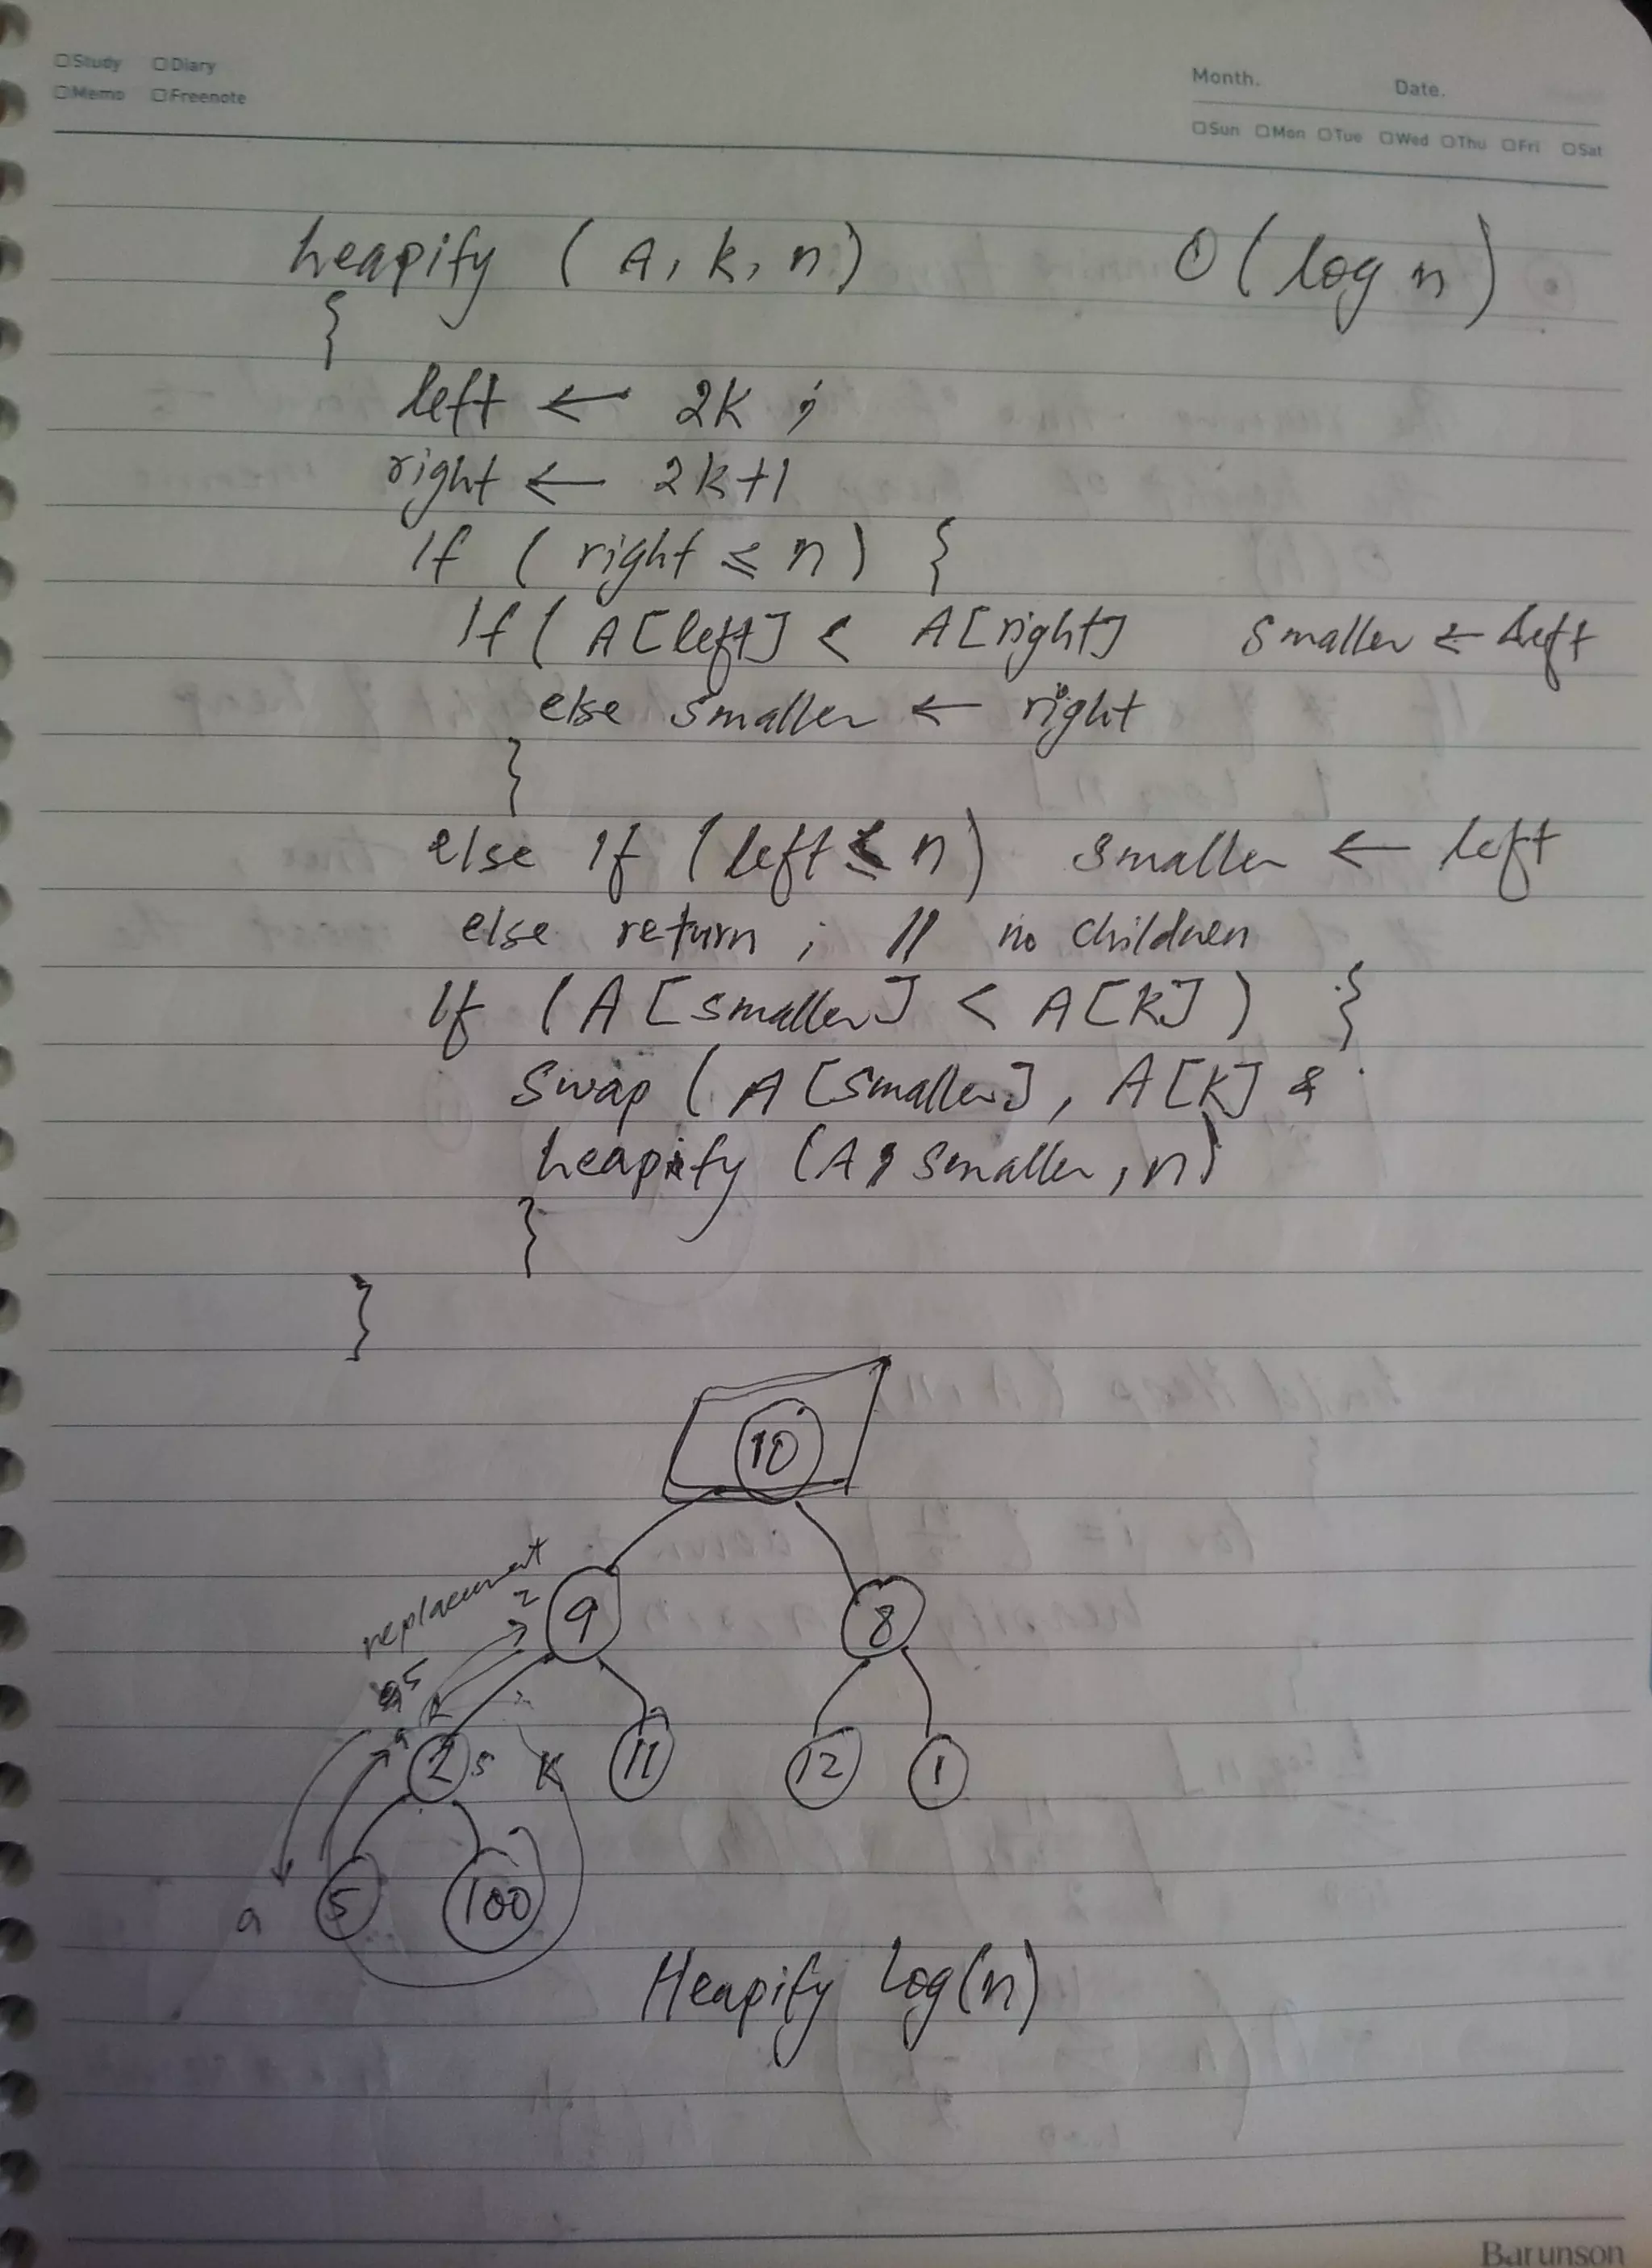 Study Diary
Memo Freenote
Month. Date.
Sun Mon Tue Wed Thu Fri Sat
heapify ( A, k, n) O(log n)
{
left ← 2K ;
right ← 2k+1
If ( right ≤ n) {
If ( A[left] < A[right] Smaller ← left
else smaller ← right
}
else If (left ≤ n) smaller ← left
else return ; // no children
If (A[smaller] < A[K]) {
Swap (A[smaller], A[K] &
heapify (A, smaller, n)
}
}
10
replacement
2
9 8
5
9
2 5 K 11 12 1
9 5 100
Heapify log(n)
Barunson